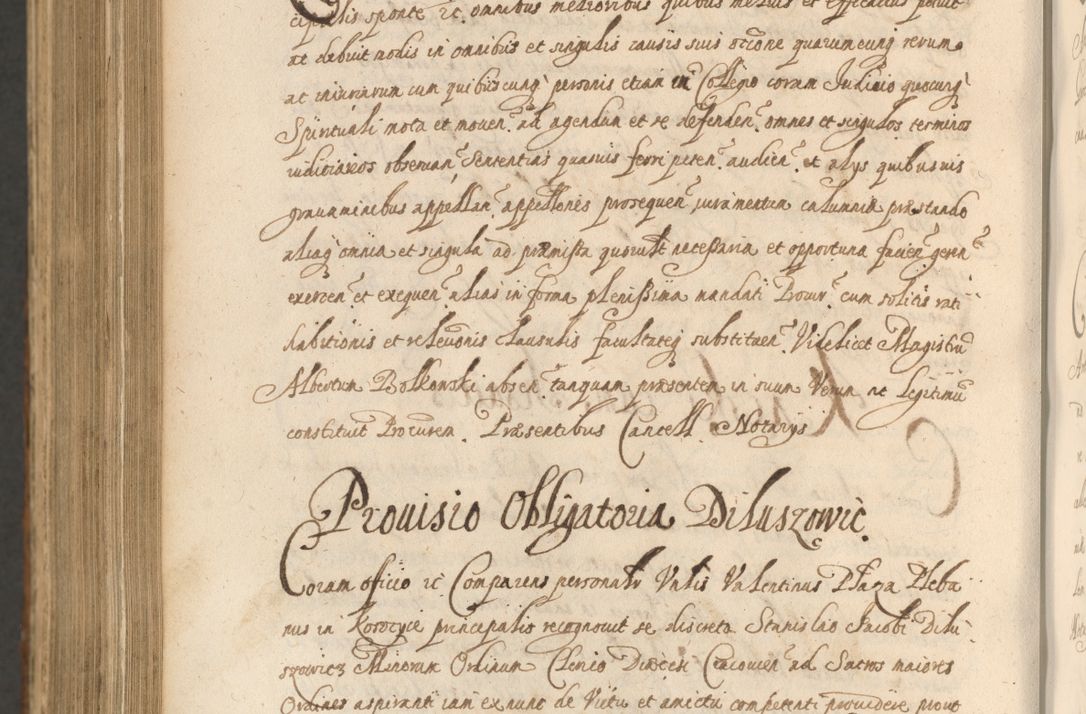 cipalis sponte rc. omnibus melioribus quibus melius et efficacius potuit
ac debuit modis in omnibus et singulis causis suis occõne quarumcunq rerum
ac iniuriarum cum quibuscunq personis etiam in Collegio coram Iudicio quocunq
Spirituali mota et mouen. ad agendum et se defenden. omnes et singulos terminos
iudiciarios obseruan. Sententias quasuis ferri peten. audien. et alys quibusuis
grauaminibus appellan. appellones prosequen. iuramentum calumniæ præstando
aliaq omnia et singula ad præmissa quouult necessaria et opportuna facien. geren.
exercen. et exequen. alias in forma plenissima mandati Procur. cum solitis rati
habitionis et releuõnis clausulis facultateq substituen. Videlicet Magistrũ
Albertum Bolkowski absen. tanquam præsentem in suum Verum ac Legitimũ
constituit Procurem. Præsentibus Cancell. Notarys
Prouisio Obligatoria Diluszowic.
Coram officio rc Comparens personalr Vnlis Valentinus Plaza Pleba
nus in Korozyce principalis recognouit se discreto Stanislao Jacobi Dilu
szowicz Minorum Ordinum Clerico Diœcesi Cracouien. ad Sacros maiores
Ordines aspiranti iam ex nunc de Victu et amictu competenti prouidere prout